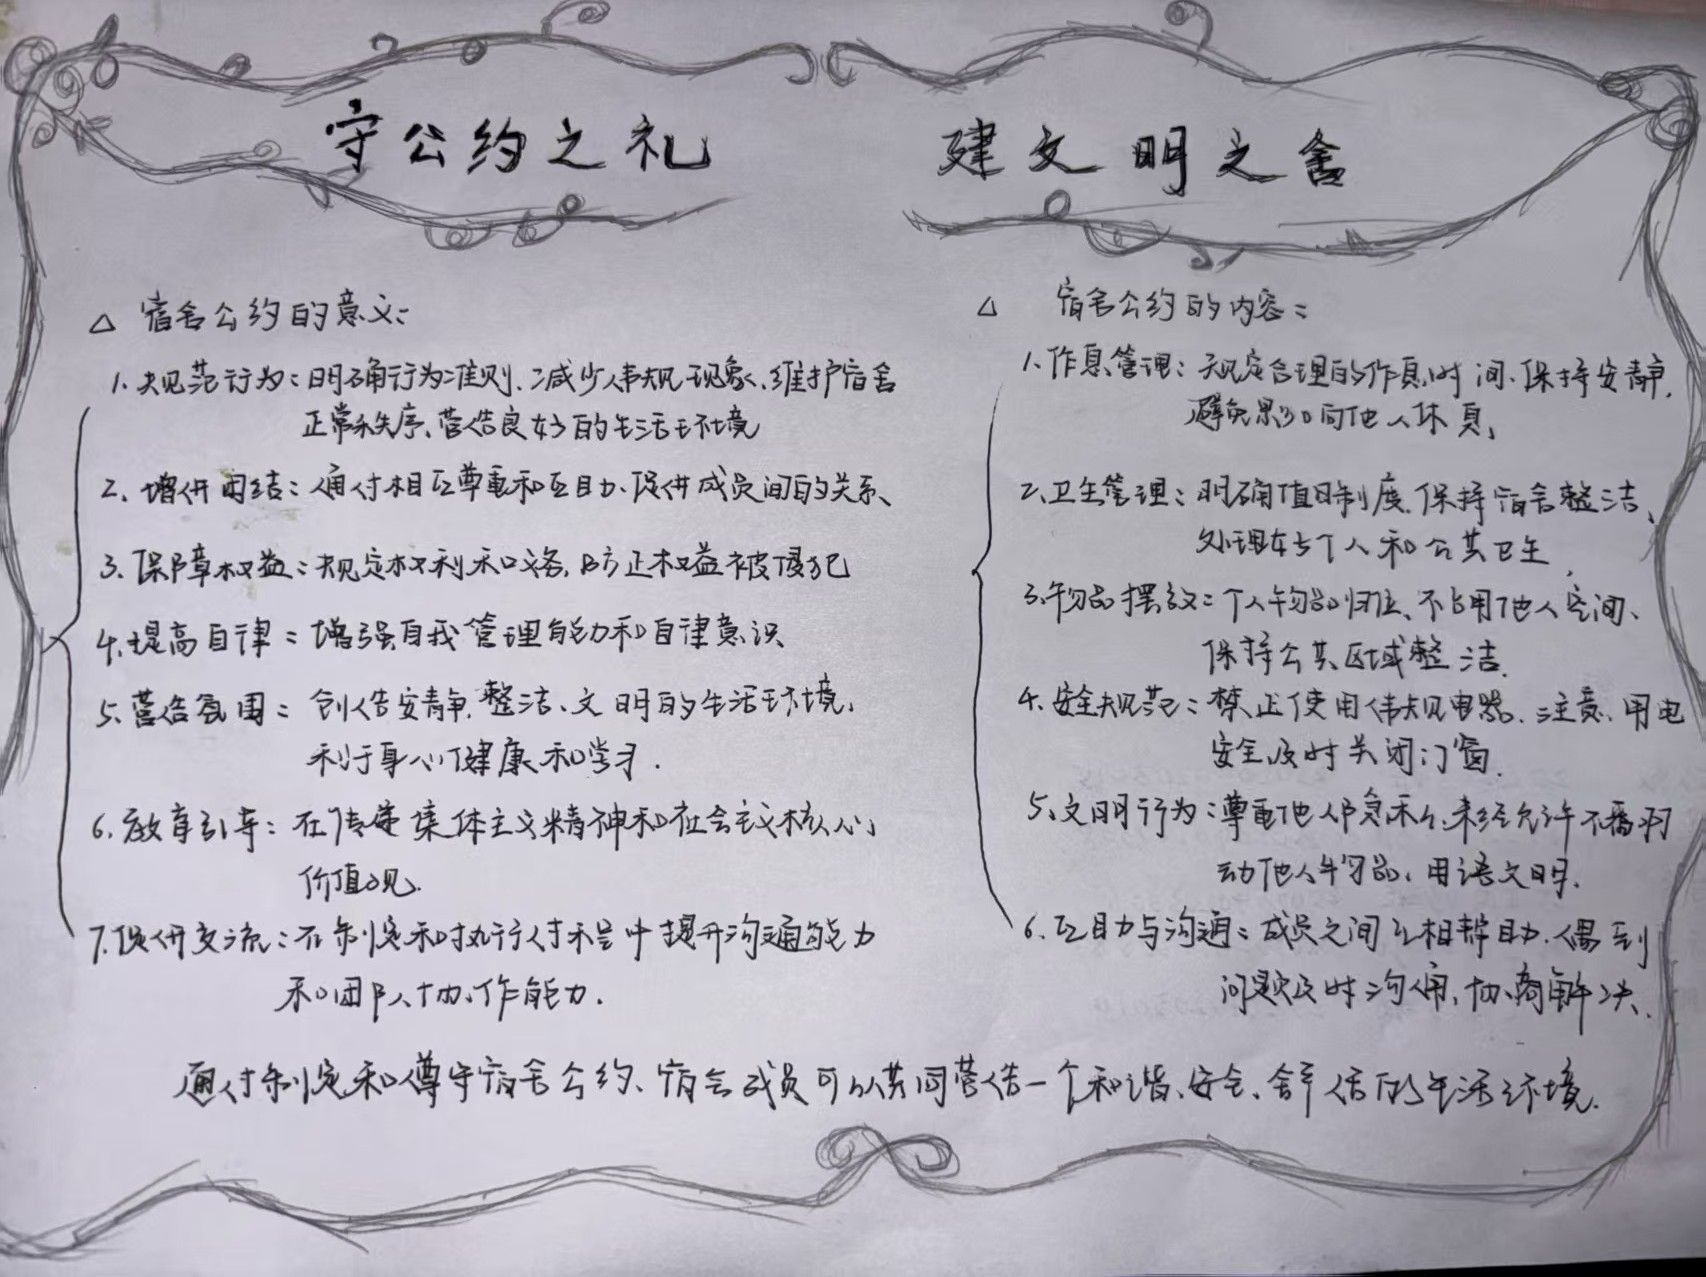 守公约之礼
建文明之舍
△ 宿舍公约的意义：
1. 规范行为：明确行为准则、减少违规现象、维护宿舍
正常秩序、营造良好的生活环境
2、增进团结：通过相互尊重和互助、促进成员间的关系、
3. 保障权益：规定权利和义务, 防止权益被侵犯
4. 提高自律：增强自我管理能力和自律意识
5. 营造氛围：创造安静、整洁、文明的生活环境、
利于身心健康和学习.
6. 教育引导：在传递集体主义精神和社会主义核心
价值观.
7. 促进交流：在制定和执行过程中提升沟通能力
和团队协作能力.
△ 宿舍公约的内容：
1. 作息管理：规定合理的作息时间、保持安静,
避免影响他人休息、
2、卫生管理：明确值日制度. 保持宿舍整洁、
处理好个人和公共卫生,
3. 物品摆放：个人物品归位、不占用他人空间、
保持公共区域整洁.
4、安全规范：禁止使用违规电器. 注意、用电
安全及时关闭门窗.
5、文明行为：尊重他人隐私、未经允许不翻
动他人物品、用语文明.
6. 互助与沟通：成员之间互相帮助. 遇到
问题及时沟通, 协商解决.
通过制定和遵守宿舍公约、宿舍成员可以共同营造一个和谐、安全、舒适的生活环境.